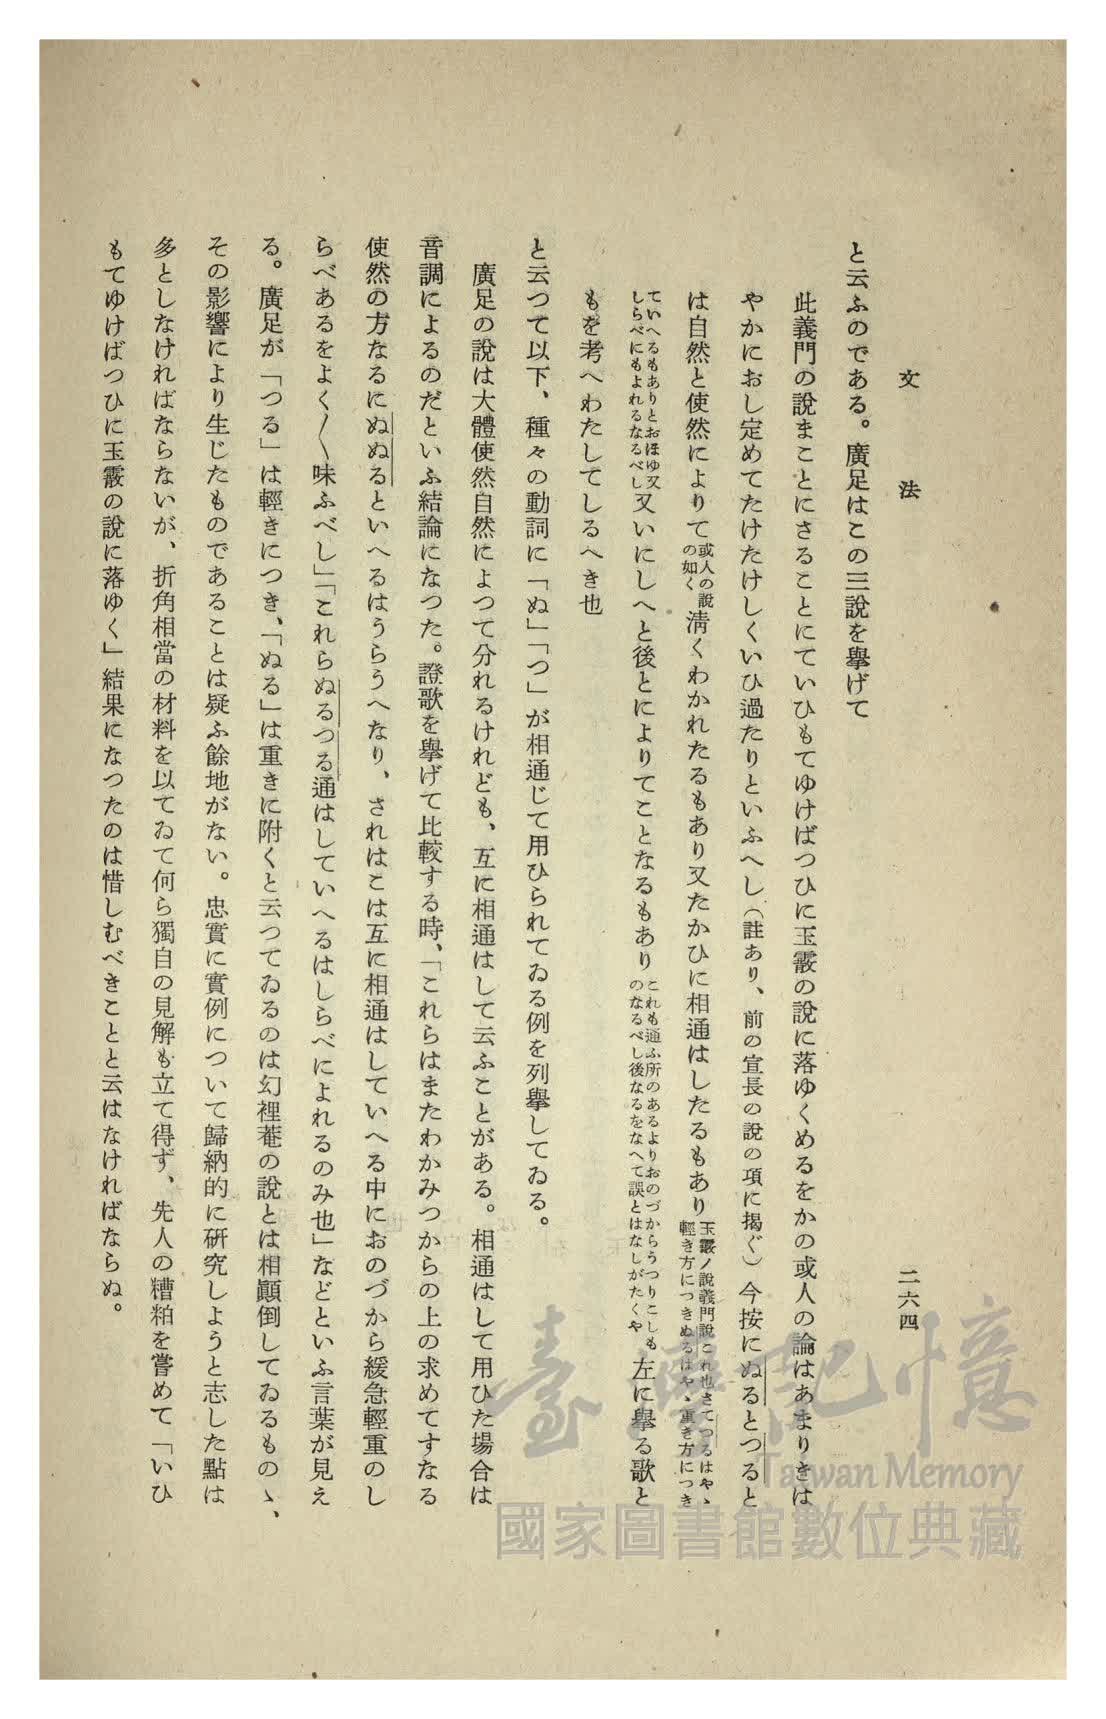 文法
二六四
と云ふのである。廣足はこの三說を擧げて
此義門の說まことにさることにていひもてゆけばつひに玉霰の說に落ゆくめるをかの或人の論はあまりきは
やかにおし定めてたけたけしくいひ過たりといふへし（註あり、前の宣長の說の項に揭ぐ）今按にぬるとつると
は自然と使然によりて或人の說の如く淸くわかれたるもあり又たかひに相通はしたるもあり玉霰ノ說義門說これ也さてつるはやゝ輕き方につきぬるはやゝ重き方につき
ていへるもありとおほゆ又しらべにもよれるなるべし又いにしへと後とによりてことなるもありこれも通ふ所のあるよりおのづからうつりこしものなるべし後なるをなへて誤とはなしがたくや左に擧る歌と
もを考へわたしてしるへき也
と云つて以下、種々の動詞に「ぬ」「つ」が相通じて用ひられてゐる例を列擧してゐる。
廣足の說は大體使然自然によつて分れるけれども、互に相通はして云ふことがある。相通はして用ひた場合は
音調によるのだといふ結論になつた。證歌を擧げて比較する時、「これらはまたわかみつからの上の求めてすなる
使然の方なるにぬぬるといへるはうらうへなり、されはこは互に相通はしていへる中におのづから緩急輕重のし
らべあるをよく〱味ふべし」「これらぬるつる通はしていへるはしらべによれるのみ也」などといふ言葉が見え
る。廣足が「つる」は輕きにつき、「ぬる」は重きに附くと云つてゐるのは幻裡菴の說とは相顚倒してゐるものゝ、
その影響により生じたものであることは疑ふ餘地がない。忠實に實例について歸納的に硏究しようと志した點は
多としなければならないが、折角相當の材料を以てゐて何ら獨自の見解も立て得ず、先人の糟粕を嘗めて「いひ
もてゆけばつひに玉霰の說に落ゆく」結果になつたのは惜しむべきことと云はなければならぬ。
臺灣記憶
Taiwan Memory
國家圖書館數位典藏